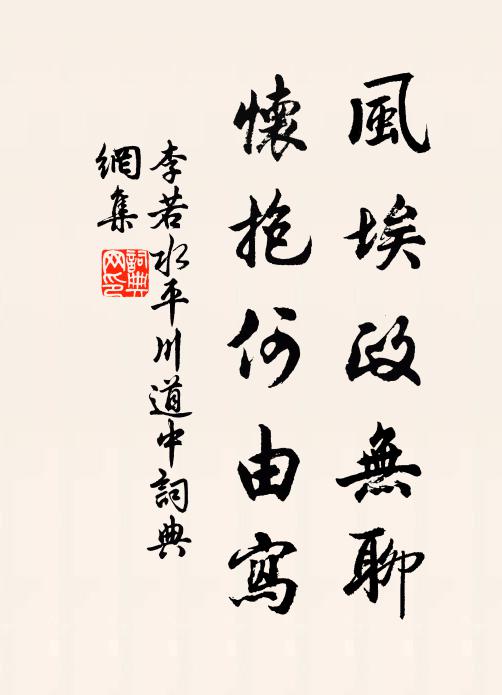 風埃政無聊
懷抱何由寫
李若水平川道中詞典
網集
詞典网印